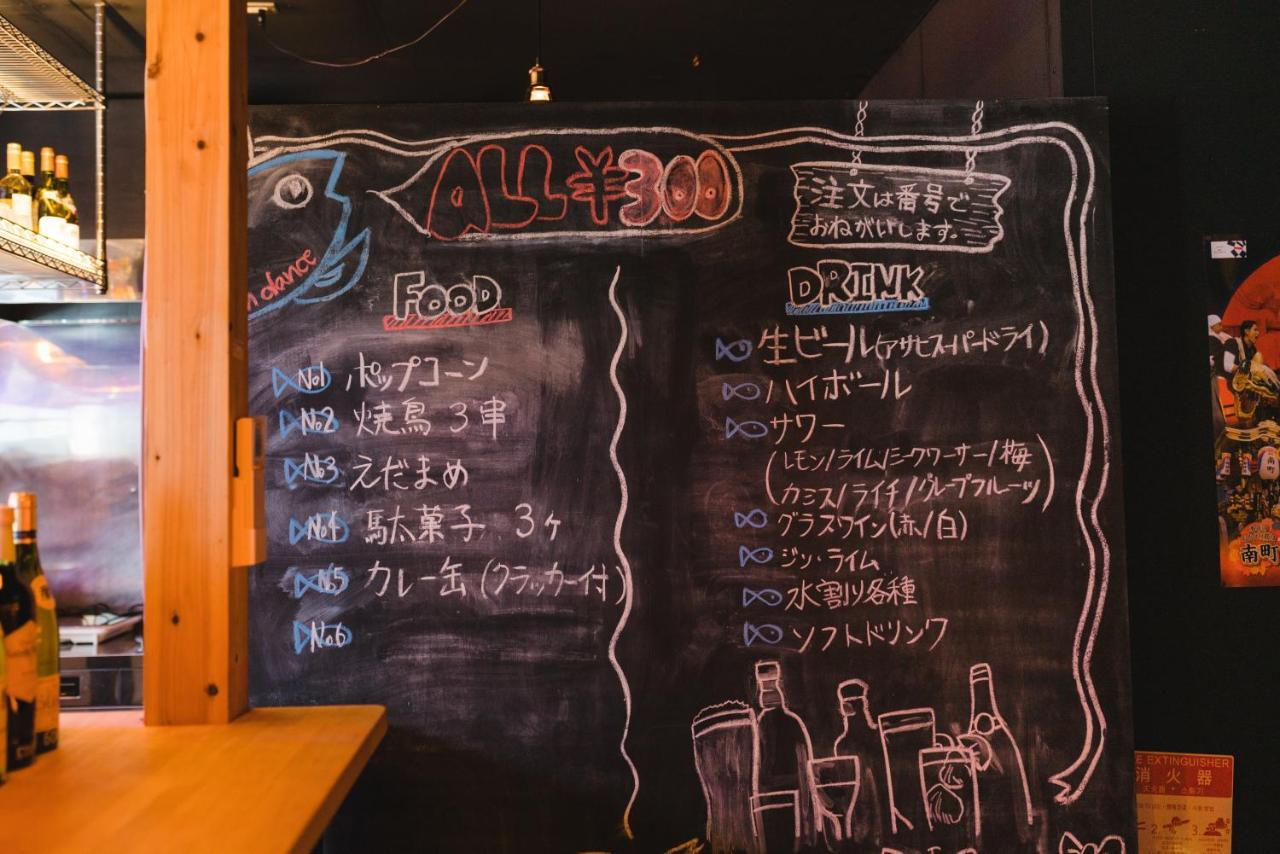 ALL ¥300
注文は番号で
おねがいします。
dance
FOOD
No1 ポップコーン
No2 焼鳥 3串
No3 えだまめ
No4 駄菓子 3ヶ
No5 カレー缶(クラッカー付)
No6
DRINK
生ビール(アサヒスーパードライ)
ハイボール
サワー
(レモン/ライム/シークワーサー/梅
カシス/ライチ/グレープフルーツ)
グラスワイン(赤/白)
ジン・ライム
水割り各種
ソフトドリンク
南町
EXTINGUISHER
消火器
灭火器・소화기
2 3